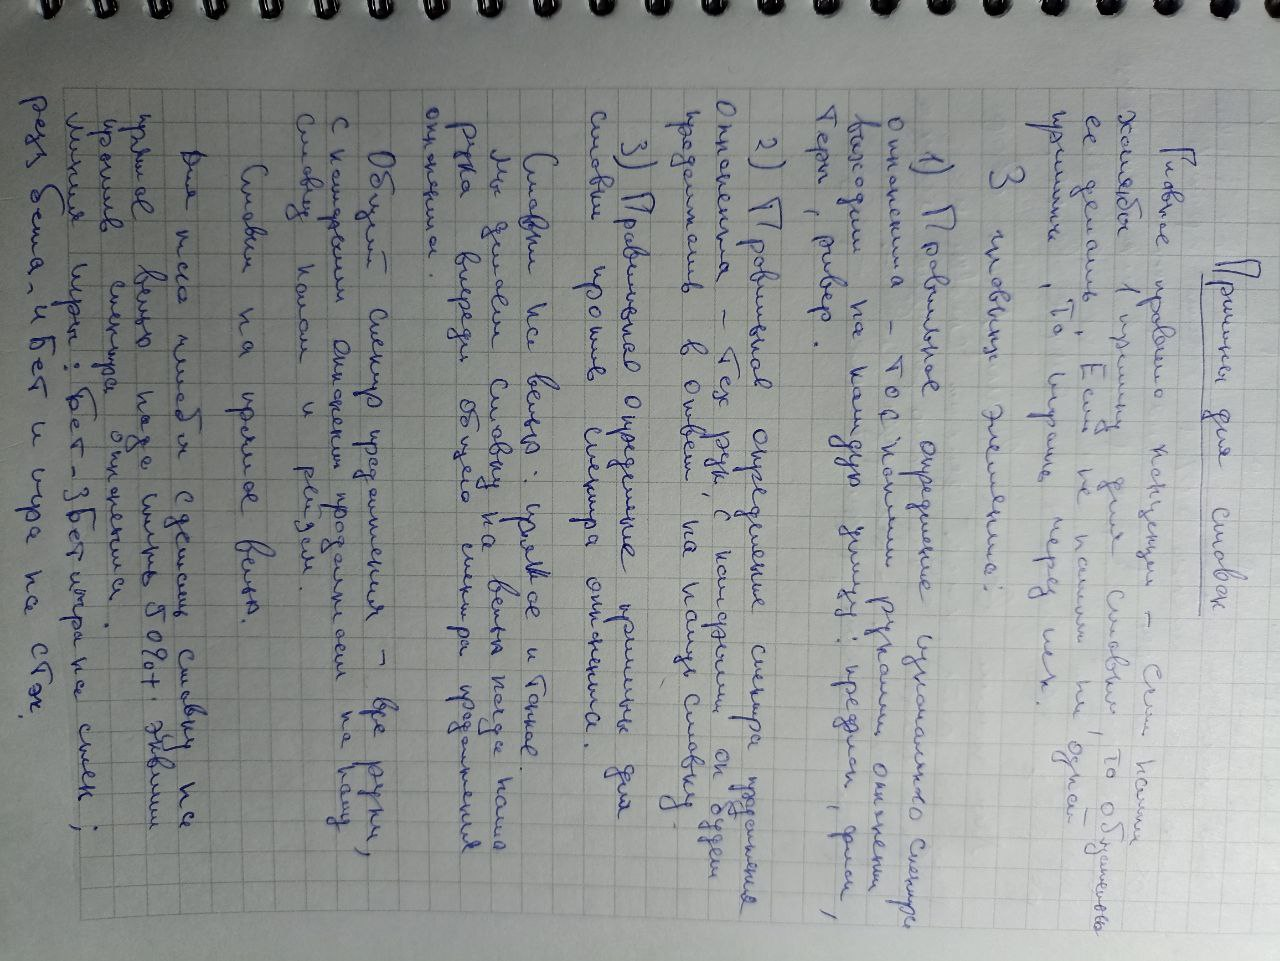 Причины для ставок
Главное правило концепции – если нашли
хотя бы 1 причину для ставки, то обязательно
ее делать. Если не нашли ни одной
причины, то играть через чек.
3 главных элемента:
1) Правильное определение изначального спектра
оппонента – то с какими руками оппонент
выходит на каждую улицу: префлоп, флоп,
терн, ривер.
2) Правильное определение спектра продолжения
оппонента – тех рук, с которыми он будет
продолжать в ответ на нашу ставку.
3) Правильное определение причины для
ставки против спектра оппонента.
Ставки на велью: прямое и тонкое.
Мы делаем ставку на велью когда наша
рука впереди общего спектра продолжения
оппонента.
Общий спектр продолжения – все руки,
с которыми оппонент продолжает на нашу
ставку колом и рейзом.
Ставки на прямое велью.
Для того чтобы сделать ставку на
прямое велью надо иметь 50%+ эквити
против спектра оппонента.
Линия игры: бет-3бет игра на стек;
рейз бета-4бет и игра на стэк.